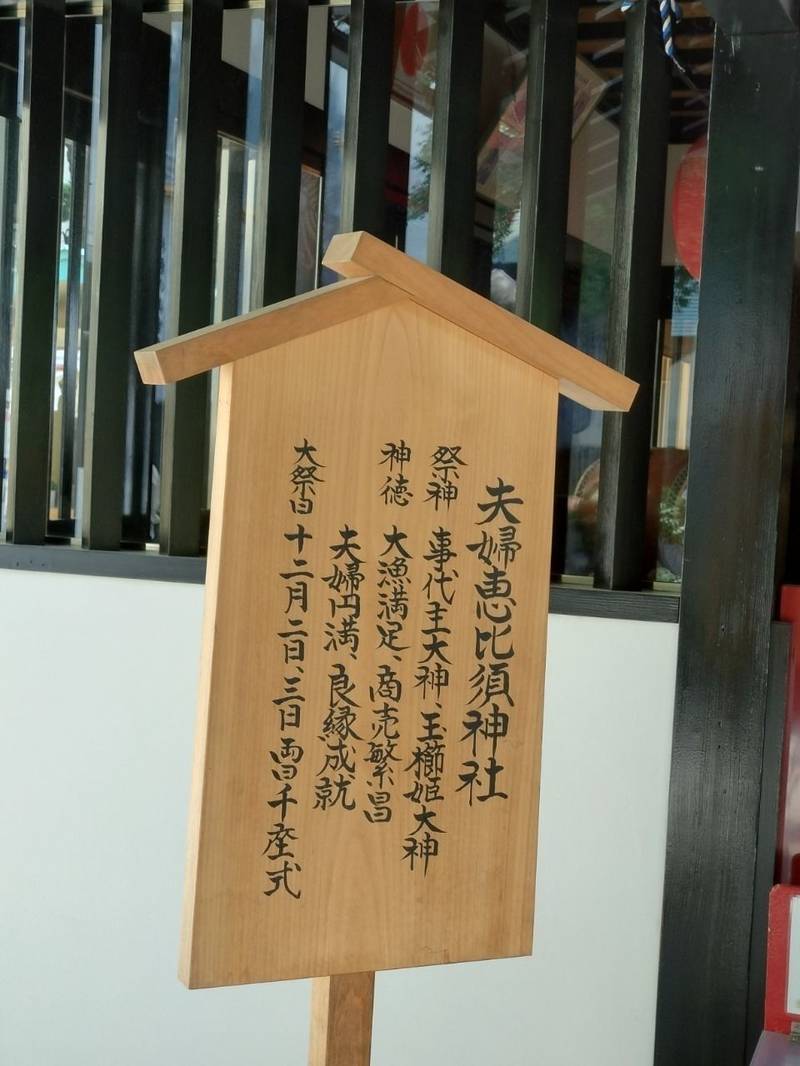 夫婦恵比須神社
祭神 事代主大神、玉櫛姫大神
神徳 大漁満足、商売繁昌
夫婦円満、良縁成就
大祭日 十二月二日、三日 両日千座式